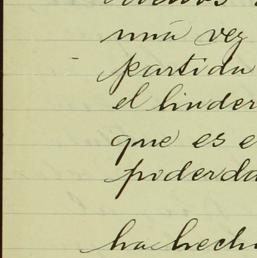 una vez
partida
el linder
que es e
poderda
ha hech